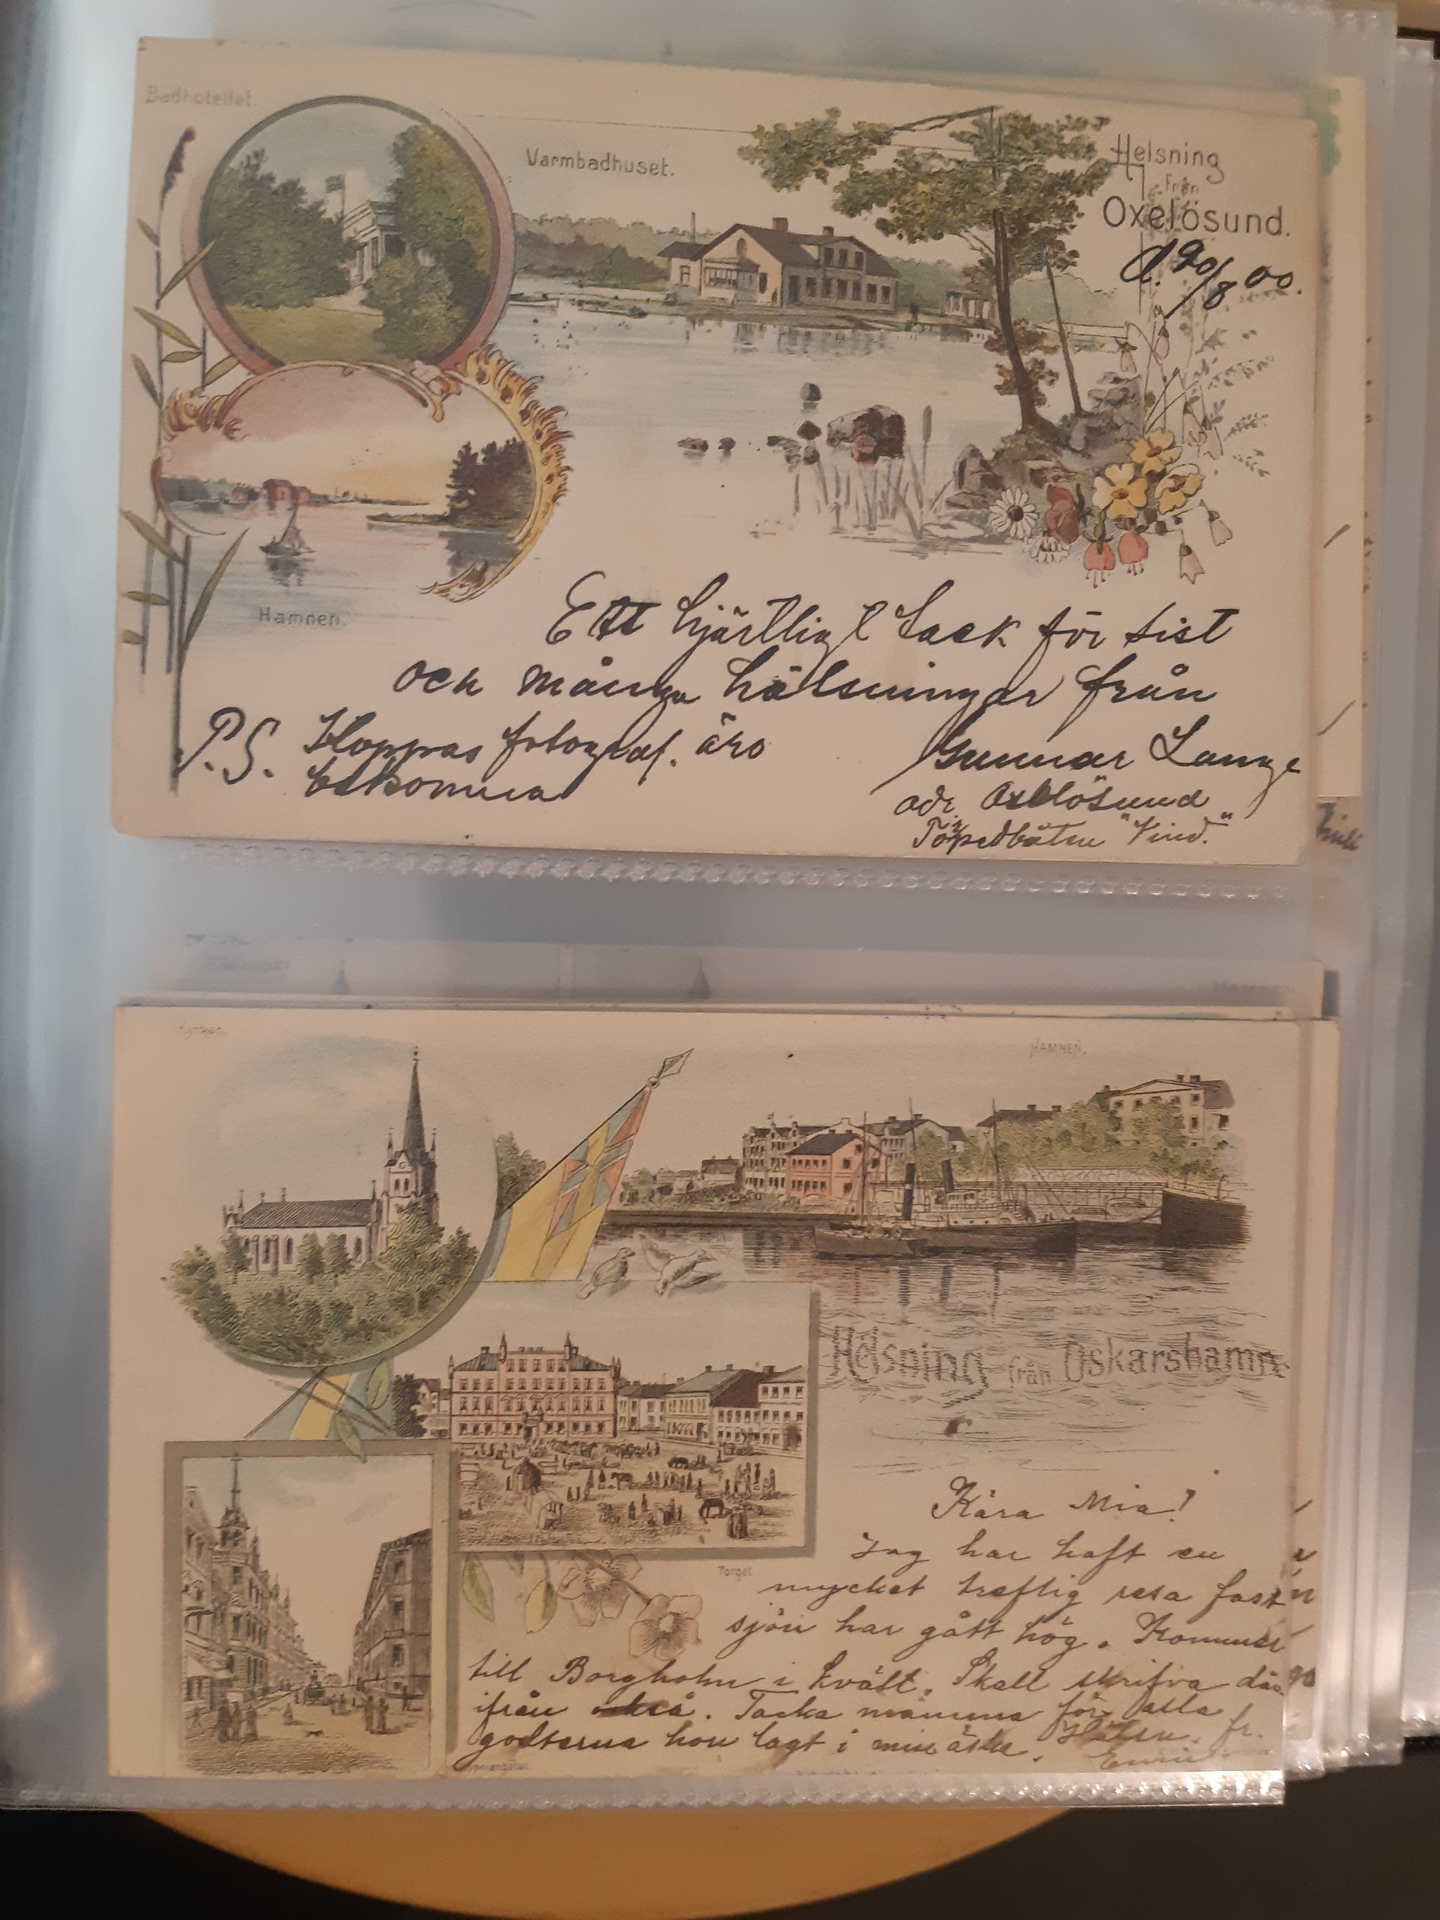 Badhotellet.
Varmbadhuset.
Helsning
från
Oxelösund.
d. 20/8 00.
Hamnen.
Ett hjärtligt tack för sist
och många hälsningar från
P.S. Hoppas fotograf. äro
bekomna
Gunnar Lange
adr. Oxelösund
Torpedbåten "Vind."
Kyrkan.
HAMNEN.
Helsning från Oskarshamn
Torget
Kära Mia!
Jag har haft en
mycket treflig resa fast
sjön har gått hög. Kommer
till Borgholm i kväll. Skall skrifva där
ifrån också. Tacka mamma för alla
godterna hon lagt i min ask. Hälsn. fr.